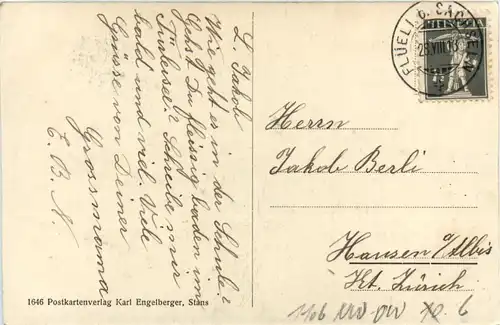 L. Jakob
Wie geht es in der Schule?
Hast Du fleissig baden im
Türlersee? Schreibe mir
bald und viel. Viele
Grüsse von Deiner
Grossmama
C. B. N.
FLÜELI b. SACHSELN
HELVETIA
Herrn
Jakob Berli
Hausen a/Albis
Kt. Zürich
1646 Postkartenverlag Karl Engelberger, Stans